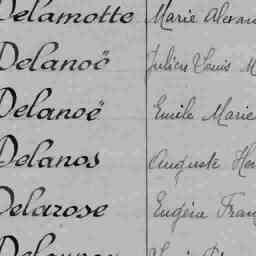 Delamotte Marie Alexan
Delanoë Julien Louis M
Delanoë Emile Marie
Delanos Auguste Hen
Delarose Eugène Fran